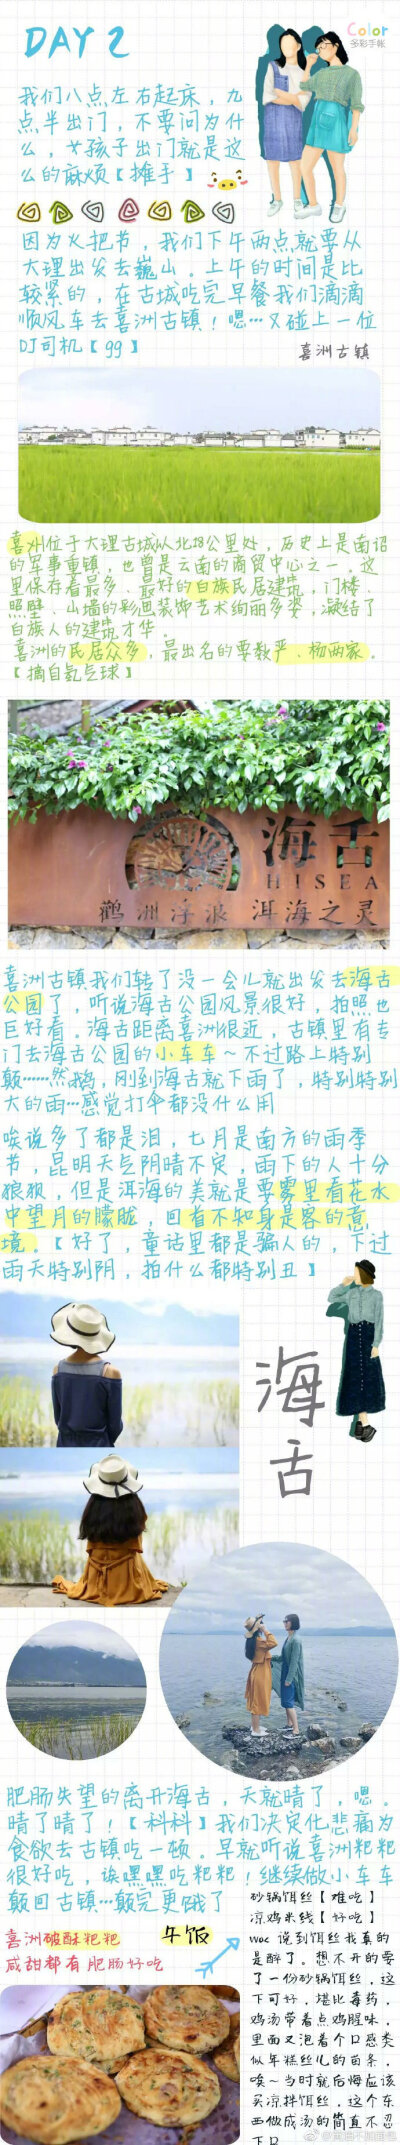 DAY 2
Color
多彩手帐
我们八点左右起床，九
点半出门，不要问为什
么，女孩子出门就是这
么的麻烦【摊手】
因为火把节，我们下午两点就要从
大理出发去巍山。上午的时间是比
较紧的，在古城吃完早餐我们滴滴
顺风车去喜洲古镇！嗯…又碰上一位
DJ司机【gg】
喜洲古镇
喜洲位于大理古城以北18公里处，历史上是南诏
的军事重镇，也曾是云南的商贸中心之一。这
里保存着最多、最好的白族民居建筑，门楼、
照壁、山墙的彩画装饰艺术绚丽多姿，凝结了
白族人的建筑才华。
喜洲的民居众多，最出名的要数严、杨两家。
【摘自氢气球】
海舌
HISEA
鹳洲浮浪 洱海之灵
喜洲古镇我们转了没一会儿就出发去海舌
公园了，听说海舌公园风景很好，拍照也
巨好看。海舌距离喜洲很近，古镇里有专
门去海舌公园的小车车～不过路上特别
颠……然鹅，刚到海舌就下雨了，特别特别
大的雨…感觉打伞都没什么用
唉说多了都是泪，七月是南方的雨季
节，昆明天气阴晴不定，雨下的人十分
狼狈，但是洱海的美就是要雾里看花水
中望月的朦胧，回看不知身是客的意
境。【好了，童话里都是骗人的，下过
雨天特别阴，拍什么都特别丑】
海舌
肥肠失望的离开海舌，天就晴了，嗯。
晴了晴了！【科科】我们决定化悲痛为
食欲去古镇吃一顿。早就听说喜洲粑粑
很好吃，诶嘿嘿吃粑粑！继续做小车车
颠回古镇…颠完更饿了
喜洲破酥粑粑
咸甜都有肥肠好吃
午饭
砂锅饵丝【难吃】
凉鸡米线【好吃】
woc 说到饵丝我真的
是醉了。想不开的要
了一份砂锅饵丝，这
下可好，堪比毒药，
鸡汤带着点鸡腥味，
里面又泡着个口感类
似年糕丝儿的面条，
唉～当时就后悔应该
买凉拌饵丝，这个东
西做成汤的简直不忍
下口